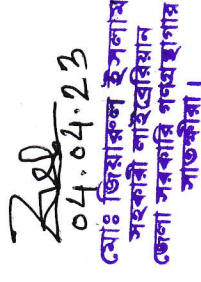 ০4.04.23
মোঃ জিয়ারুল ইসলাম
সহকারী লাইব্রেরিয়ান
জেলা সরকারি গণগ্রন্থাগার
সাতক্ষীরা।